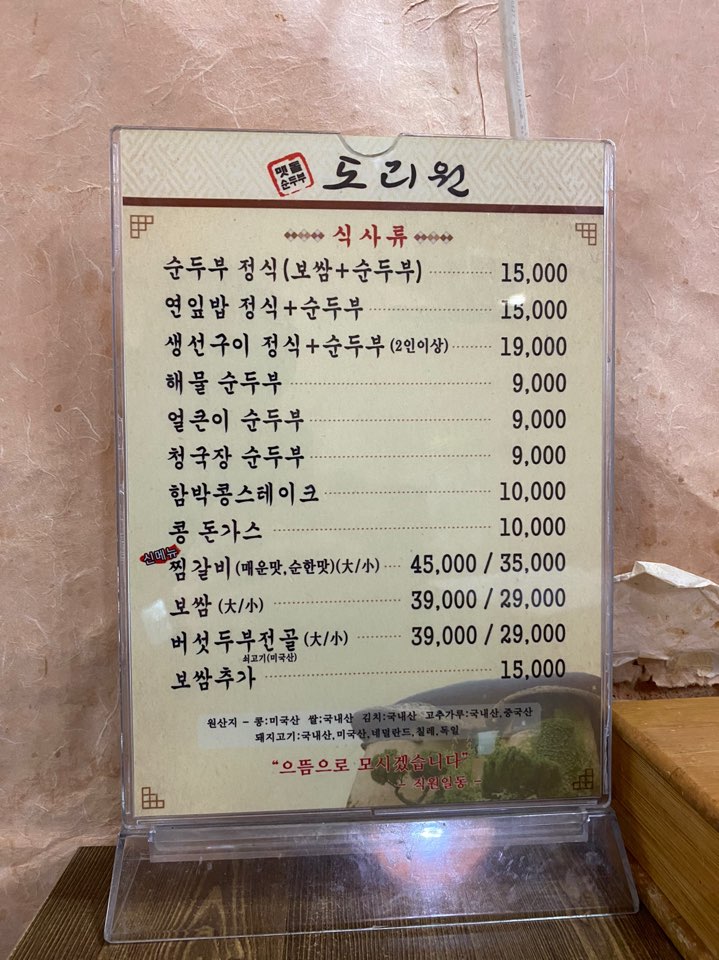 멧돌
순두부
도리원
식사류
순두부 정식(보쌈+순두부) 15,000
연잎밥 정식+순두부 15,000
생선구이 정식+순두부(2인이상) 19,000
해물 순두부 9,000
얼큰이 순두부 9,000
청국장 순두부 9,000
함박콩스테이크 10,000
콩 돈가스 10,000
신메뉴
찜갈비(매운맛,순한맛)(大/小) 45,000 / 35,000
보쌈 (大/小) 39,000 / 29,000
버섯두부전골 (大/小) 39,000 / 29,000
쇠고기(미국산)
보쌈추가 15,000
원산지 - 콩:미국산 쌀:국내산 김치:국내산 고추가루:국내산,중국산
돼지고기:국내산,미국산,네덜란드,칠레,독일
"으뜸으로 모시겠습니다"
- 직원일동 -